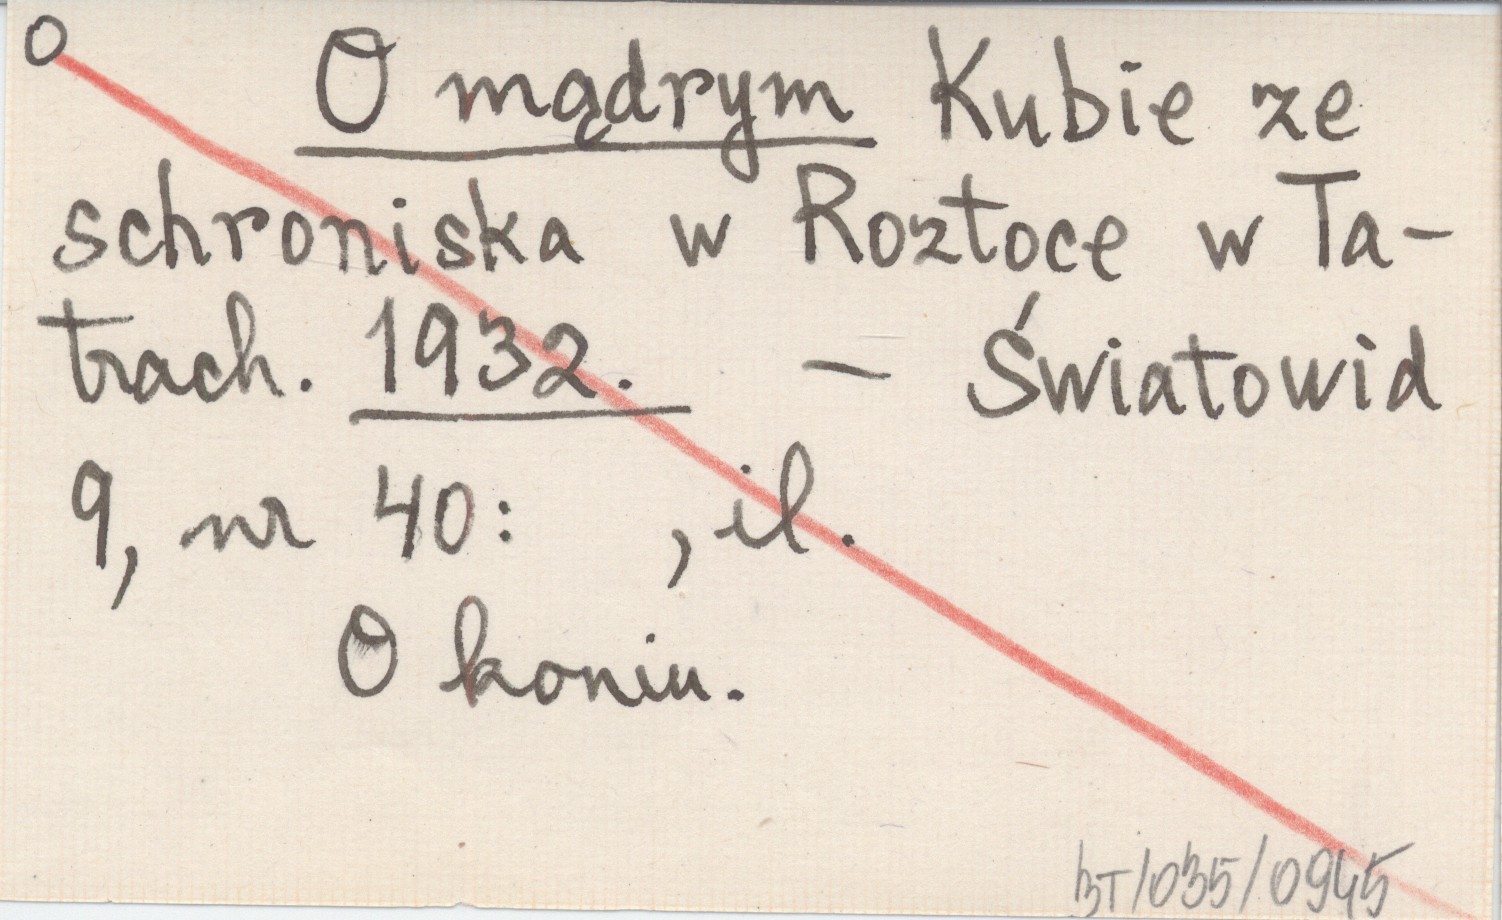 O
O mądrym Kubie ze
schroniska w Roztoce w Ta-
trach. 1932. — Światowid
9, nr 40: , il.
O koniu.
BT/035/0945